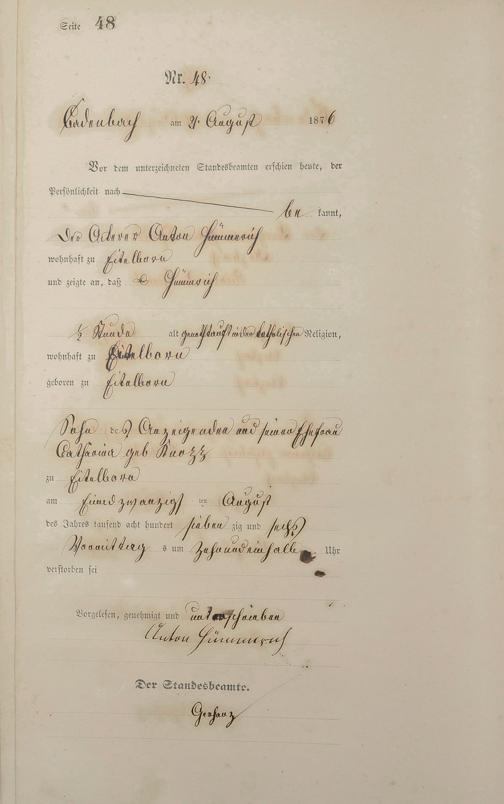 Seite 48
Nr. 48.
Cadenbach am 21. August 1876
Vor dem unterzeichneten Standesbeamten erschien heute, der
Persönlichkeit nach
be kannt,
Der Ackerer Anton Hümmerich
wohnhaft zu Eitelborn
und zeigte an, daß Hümmerich
½ Stunde alt katholischen Religion,
wohnhaft zu Eitelborn
geboren zu Eitelborn
Sohn des Anzeigenden und seiner Ehefrau
Catharina geb Knopp
zu Eitelborn
am Einundzwanzigst ten August
des Jahres tausend acht hundert sieben zig und sechs
Vormittag s um Zehnundeinhalb Uhr
verstorben sei
Vorgelesen, genehmigt und unterschrieben
Anton Hümmerich
Der Standesbeamte.